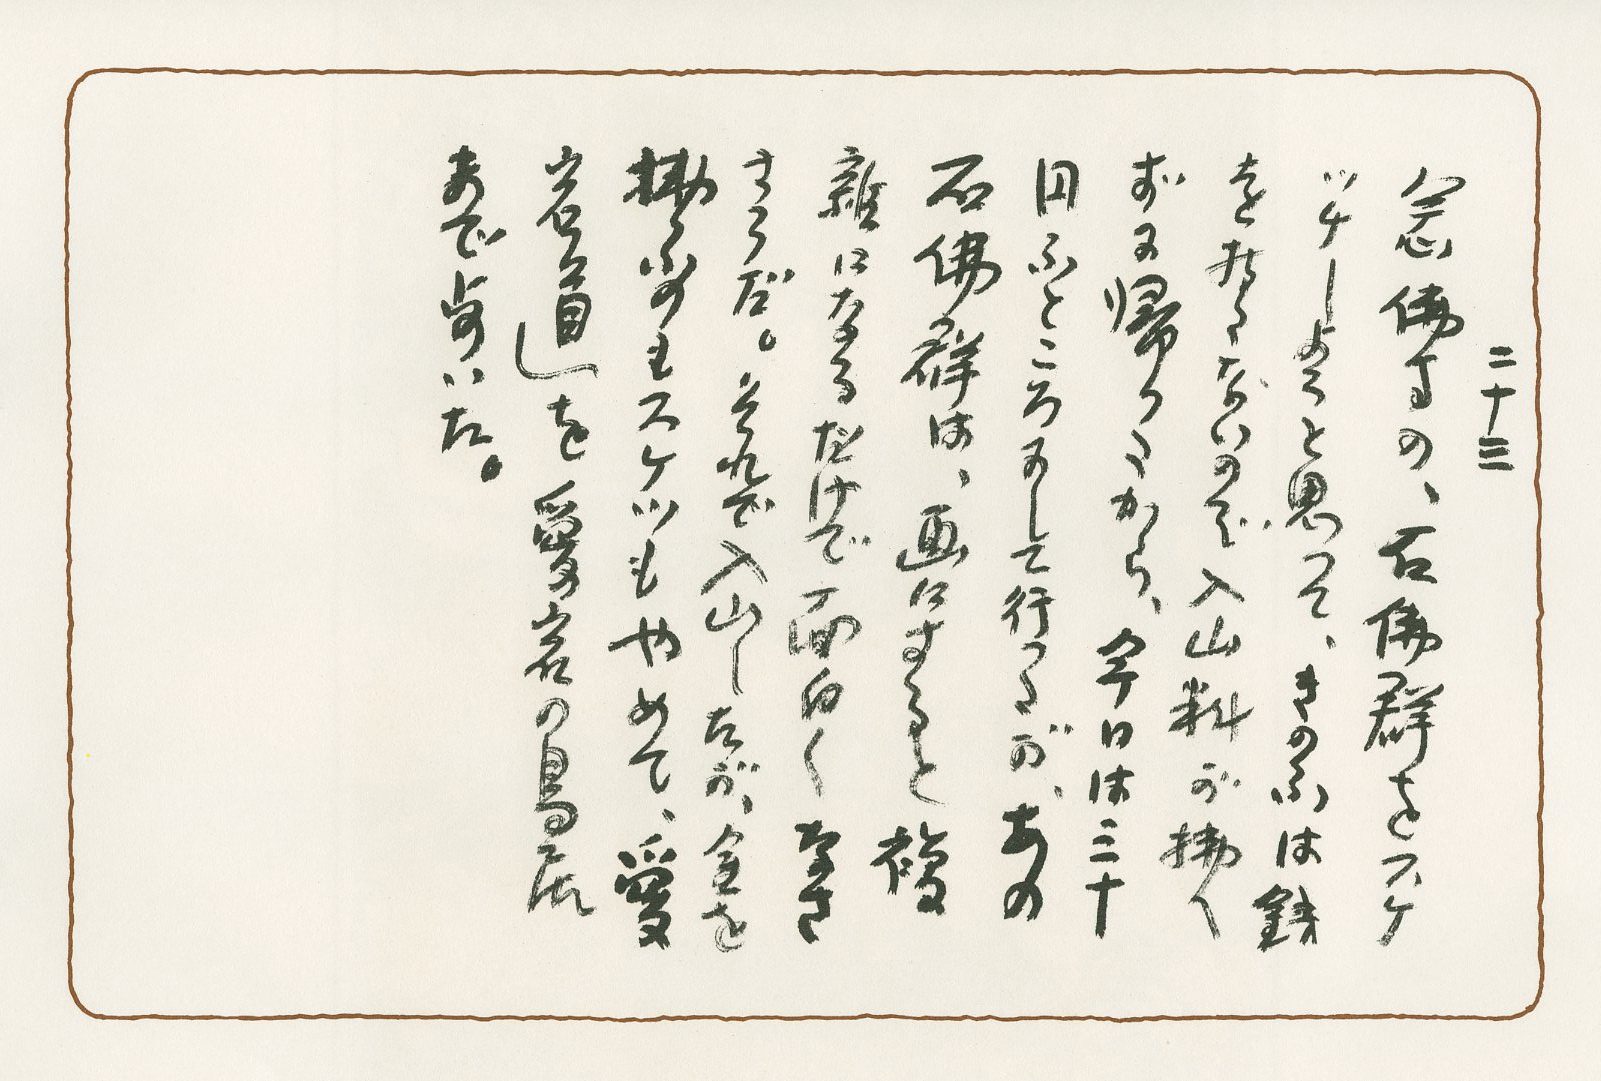 二十三
念佛寺の、石佛群をスケ
ッチしようと思って、きのふは銭
を持たないので入山料が拂へ
ずに帰ったから、今日は三十
円ふところにして行ったが、あの
石佛群は、画にすると複
雑になるだけで面白くなさ
さうだ。それで入山したが、金を
拂ふのもスケッチもやめて、愛
宕道を愛宕の鳥居
まで歩いた。